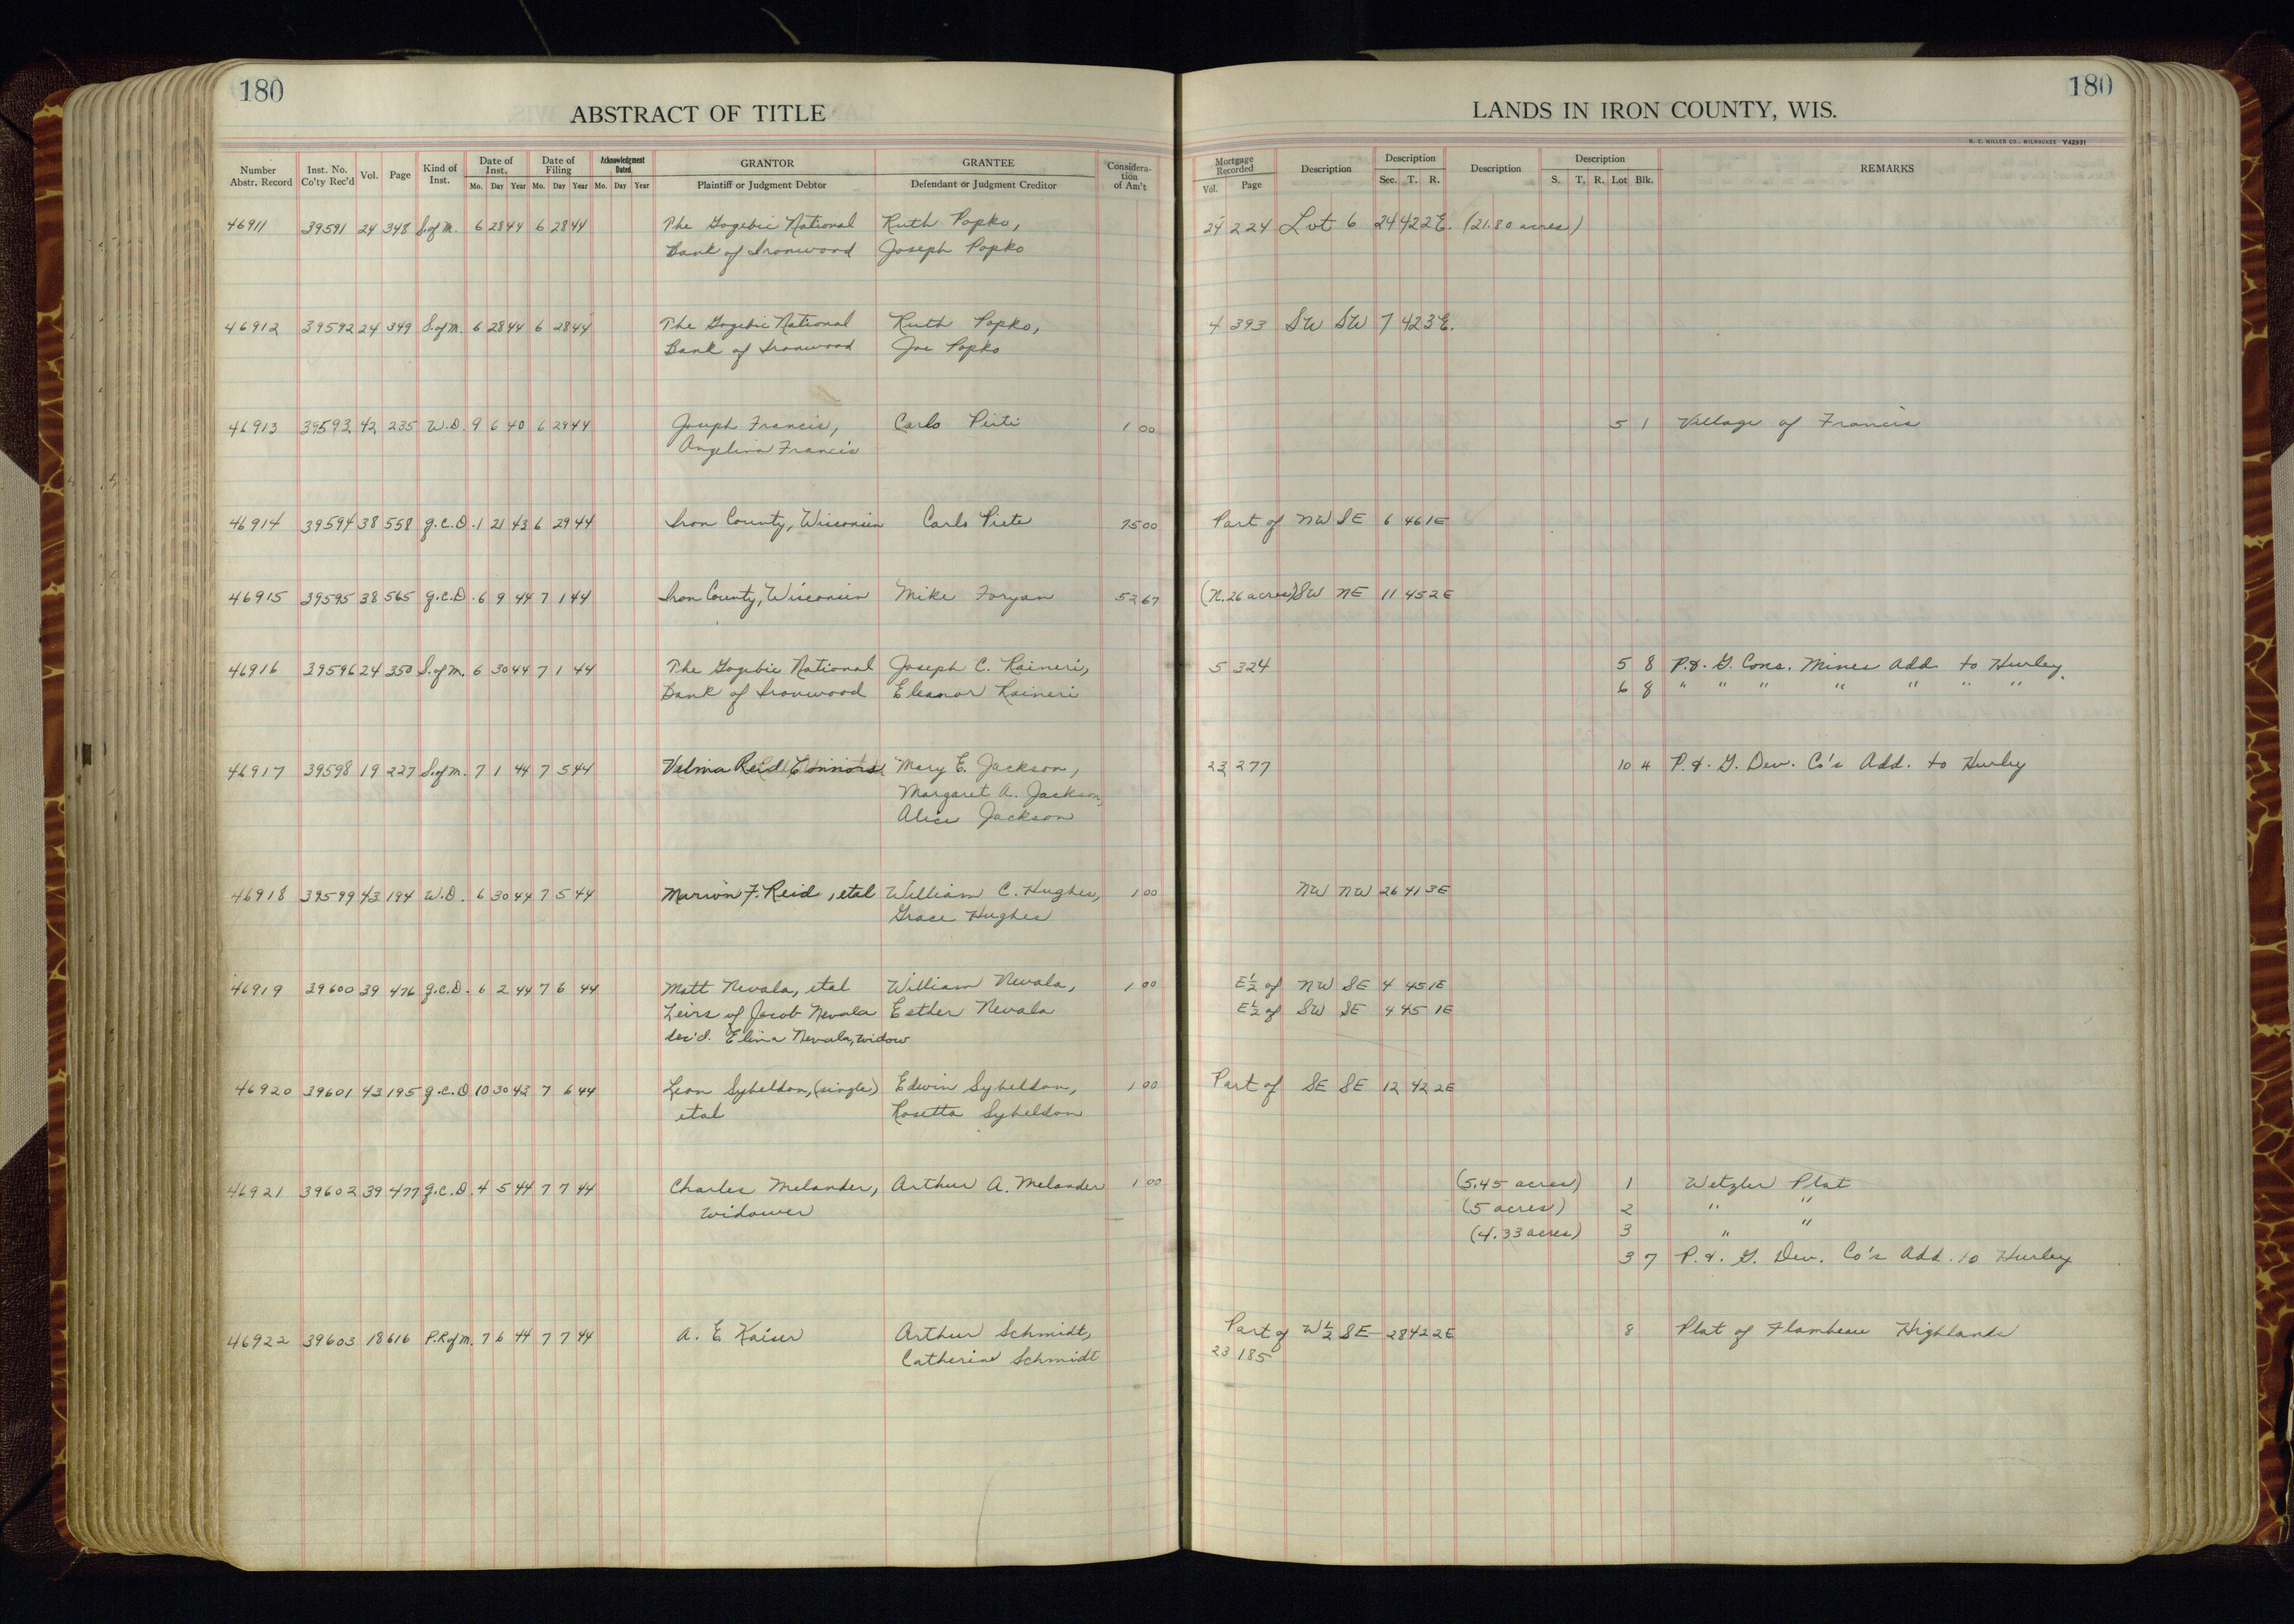 180
ABSTRACT OF TITLE
Number Abstr. Record Inst. No. Co'ty Rec'd Vol. Page Kind of Inst. Date of Inst. Mo. Day Year Date of Filing Mo. Day Year Acknowledgment Dated Mo. Day Year GRANTOR Plaintiff or Judgment Debtor GRANTEE Defendant or Judgment Creditor Consideration of Am't
46911 39591 24 348 S.of M. 6 28 44 6 28 44 The Gogebic National Ruth Popko,
Bank of Ironwood Joseph Popko
46912 39592 24 349 S.of M. 6 28 44 6 28 44 The Gogebic National Ruth Popko,
Bank of Ironwood Joe Popko
46913 39593 42 235 W.D. 9 6 40 6 29 44 Joseph Francis, Carlo 1 00
Angelina Francis
46914 39594 38 558 g.C.D. 1 21 43 6 29 44 Iron County, Wisconsin Carlo 75 00
46915 39595 38 565 g.C.D. 6 9 44 7 1 44 Iron County, Wisconsin Mike Foryan 52 67
46916 39596 24 350 S.of M. 6 30 44 7 1 44 The Gogebic National Joseph C. Raineri,
Bank of Ironwood Eleanor Raineri
46917 39598 19 227 S.of M. 7 1 44 7 5 44 Velma Reid Connors Mary E. Jackson,
Margaret A. Jackson,
Alice Jackson
46918 39599 43 194 W.D. 6 30 44 7 5 44 Marion F. Reid, etal William C. Hughes, 1 00
Grace Hughes
46919 39600 39 476 g.C.D. 6 2 44 7 6 44 Matt Nevala, etal William Nevala, 1 00
Heirs of Jacob Nevala Esther Nevala
dec'd. Elina Nevala, widow
46920 39601 43 195 g.C.D 10 30 43 7 6 44 Leon Sybeldon, (single) Edwin Sybeldon, 1 00
etal Rosetta Sybeldon
46921 39602 39 477 g.C.D. 4 5 44 7 7 44 Charles Melander, Arthur A. Melander 1 00
widower
46922 39603 18 616 P.R.of M. 7 6 44 7 7 44 A. E Kaiser Arthur Schmidt,
Catherine Schmidt
180
LANDS IN IRON COUNTY, WIS.
H. C. MILLER CO., MILWAUKEE Y42931
Mortgage Recorded Vol. Page Description Description Sec. T. R. Description Description S. T. R. Lot Blk. REMARKS
24 224 Lot 6 24 42 2E. (21.80 acres)
4 393 SW SW 7 42 3E.
5 1 Village of Francis
Part of NW SE 6 46 1E
(N.26 acres) SW NE 11 45 2E
5 324 5 8 P.&. G. Cons. Mines Add to Hurley.
6 8 " " " " " " "
23 277 10 4 P.&. G. Dev. Co's Add. to Hurley
NW NW 26 41 3E
E½ of NW SE 4 45 1E
E½ of SW SE 4 45 1E
Part of SE SE 12 42 2E
(5.45 acres) 1 Wetzler Plat
(5 acres) 2 " "
(4.33 acres) 3 " "
3 7 P.&. G. Dev. Co's Add. to Hurley
Part of W½ SE 28 42 2E 8 Plat of Flambeau Highlands
23 185